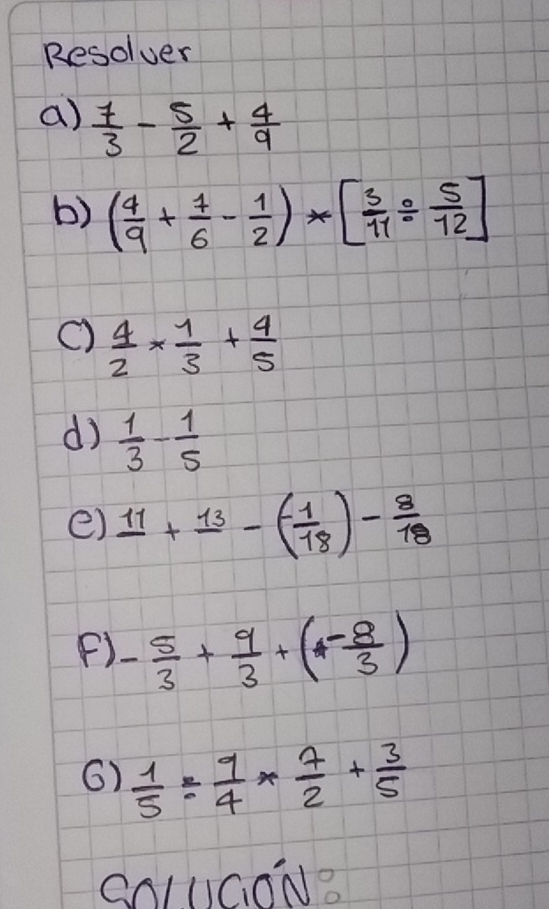 Resolver
a) 7/3 - 5/2 + 4/9
b) (4/9 + 7/6 - 1/2) * [3/11 ÷ 5/12]
C) 4/2 * 1/3 + 4/5
d) 1/3 - 1/5
e) 11 + 13 - (-1/18) - 8/18
F) - 5/3 + 9/3 + (-8/3)
G) 1/5 ÷ 9/4 * 7/2 + 3/5
SOLUCIÓN: